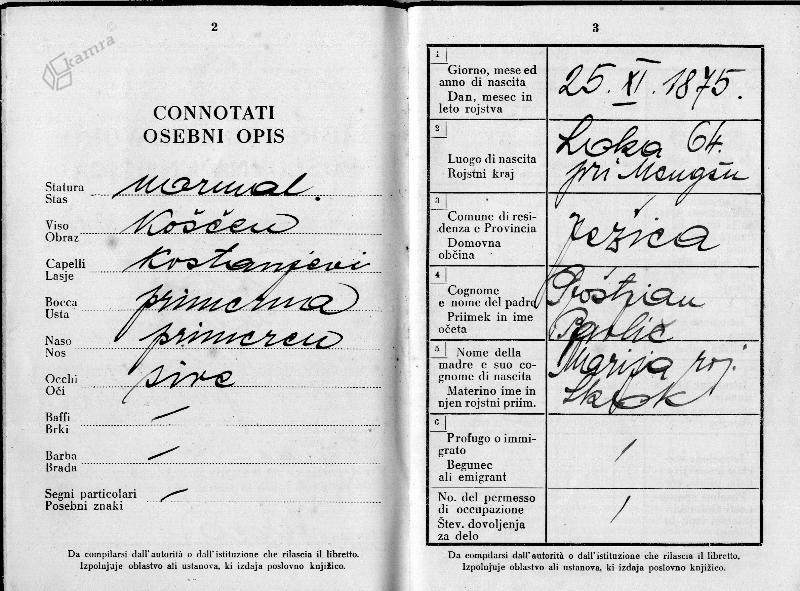 kamra
2
CONNOTATI
OSEBNI OPIS
Statura
Stas
normal.
Viso
Obraz
Koščen
Capelli
Lasje
Kostanjevi
Bocca
Usta
primerna
Naso
Nos
primeren
Occhi
Oči
sive
Baffi
Brki
/
Barba
Brada
/
Segni particolari
Posebni znaki
/
Da compilarsi dall'autorità o dall'istituzione che rilascia il libretto.
Izpolnjuje oblastvo ali ustanova, ki izdaja poslovno knjižico.
3
1
Giorno, mese ed
anno di nascita
Dan, mesec in
leto rojstva
25. XI. 1875.
2
Luogo di nascita
Rojstni kraj
Loka 64.
pri Mengšu
3
Comune di resi-
denza e Provincia
Domovna
občina
Ježica
4
Cognome
e nome del padre
Priimek in ime
očeta
Pavlič
5
Nome della
madre e suo co-
gnome di nascita
Materino ime in
njen rojstni priim.
Marija roj.
6
Profugo o immi-
grato
Begunec
ali emigrant
/
No. del permesso
di occupazione
Štev. dovoljenja
za delo
/
Da compilarsi dall'autorità o dall'istituzione che rilascia il libretto.
Izpolnjuje oblastvo ali ustanova, ki izdaja poslovno knjižico.